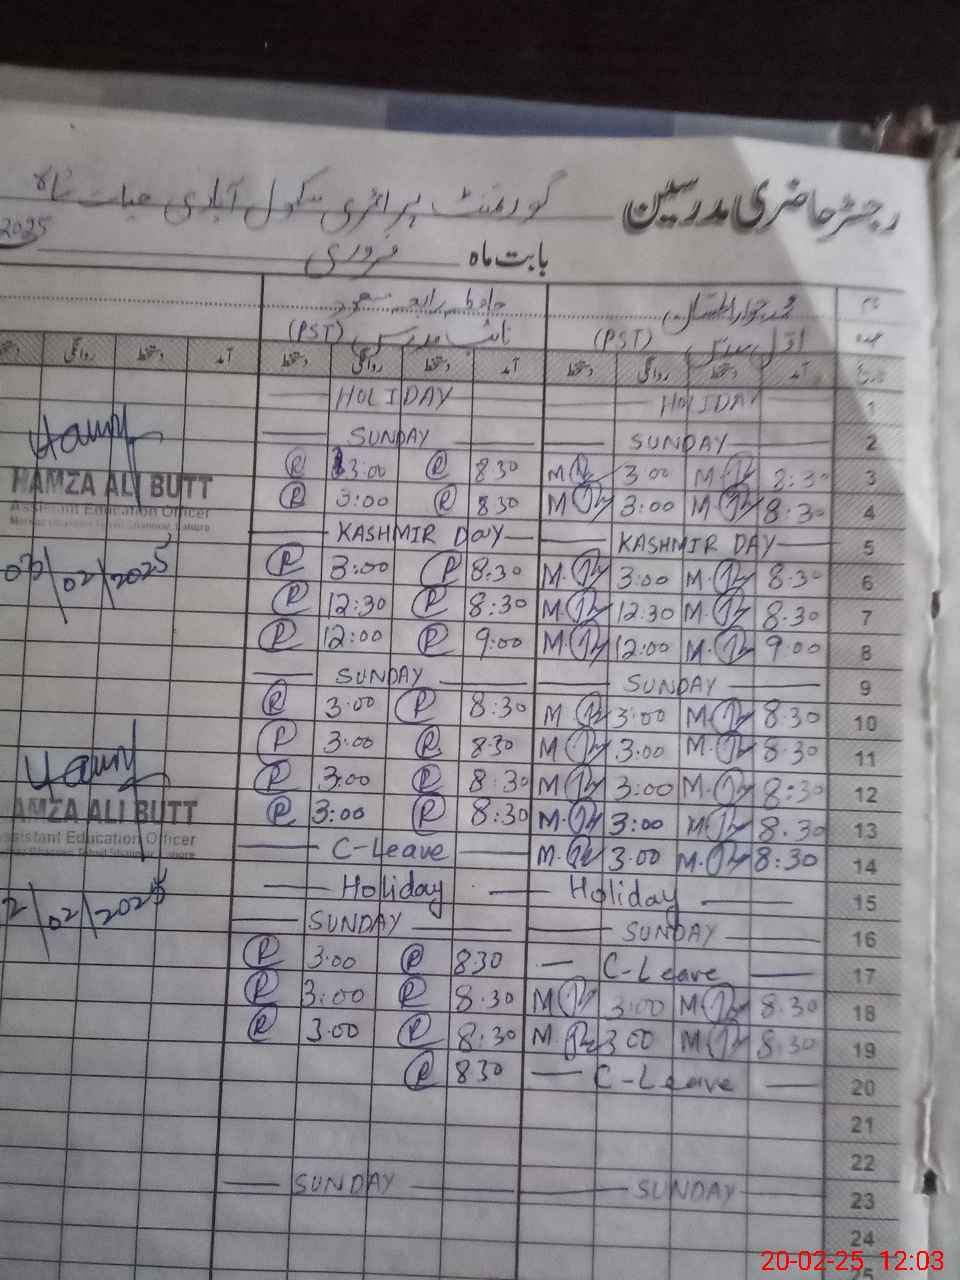 رجسٹر حاضری مدرسین گورنمنٹ پرائمری سکول آبادی حیات
بابت ماہ فروری 2025
نام
عہدہ اول مدرس (PST) نائب مدرس (PST)
تاریخ آمد دستخط روانگی دستخط آمد دستخط روانگی دستخط آمد دستخط روانگی دستخط
1 HOLIDAY HOLIDAY
2 SUNDAY SUNDAY
3 8:30 M 3:00 M 8:30 R 3:00 R
4 8:30 M 3:00 M 8:30 R 3:00 R
5 KASHMIR DAY KASHMIR DAY
6 8:30 M. 3:00 M. 8:30 R 3:00 R
7 8:30 M. 12:30 M. 8:30 R 12:30 R
8 9:00 M. 12:00 M. 9:00 R 12:00 R
9 SUNDAY SUNDAY
10 8:30 M. 3:00 M. 8:30 R 3:00 R
11 8:30 M. 3:00 M. 8:30 R 3:00 R
12 8:30 M. 3:00 M. 8:30 R 3:00 R
13 8:30 M. 3:00 M. 8:30 R 3:00 R
14 8:30 M. 3:00 M. C-Leave
15 Holiday Holiday
16 SUNDAY SUNDAY
17 C-Leave 8:30 R 3:00 R
18 8:30 M 3:00 M 8:30 R 3:00 R
19 8:30 M 3:00 M. 8:30 R 3:00 R
20 C-Leave 8:30 R
21
22
23 SUNDAY SUNDAY
24
25
HAMZA ALI BUTT
Assistant Education Officer
03/02/2025
AMZA ALI BUTT
Assistant Education Officer
2/02/2025
20-02-25 12:03